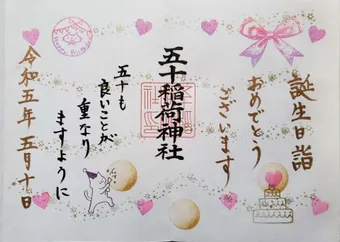 誕生日詣
おめでとう
ございます
五十稲荷神社
五十も
良いことが
重なり
ますように
令和五年五月十日